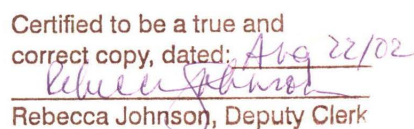 Certified to be a true and
correct copy, dated: Aug 22/02
Rebecca Johnson
Rebecca Johnson, Deputy Clerk